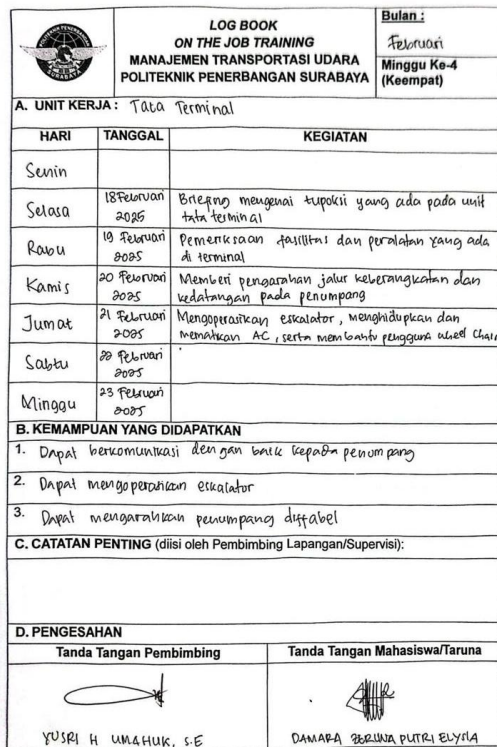 POLITEKNIK PENERBANGAN
SURABAYA
LOG BOOK
ON THE JOB TRAINING
MANAJEMEN TRANSPORTASI UDARA
POLITEKNIK PENERBANGAN SURABAYA
Bulan :
Februari
Minggu Ke-4
(Keempat)
A. UNIT KERJA : Tata Terminal
HARI TANGGAL KEGIATAN
Senin
Selasa 18 Februari 2025 Briefing mengenai tupoksi yang ada pada unit
tata terminal
Rabu 19 Februari 2025 Pemeriksaan fasilitas dan peralatan yang ada
di terminal
Kamis 20 Februari 2025 Memberi pengarahan jalur keberangkatan dan
kedatangan pada penumpang
Jumat 21 Februari 2025 Mengoperasikan eskalator, menghidupkan dan
mematikan AC, serta membantu pengguna wheel Chair
Sabtu 22 Februari 2025
Minggu 23 Februari 2025
B. KEMAMPUAN YANG DIDAPATKAN
1. Dapat berkomunikasi dengan baik kepada penumpang
2. Dapat mengoperasikan eskalator
3. Dapat mengarahkan penumpang diffabel
C. CATATAN PENTING (diisi oleh Pembimbing Lapangan/Supervisi):
D. PENGESAHAN
Tanda Tangan Pembimbing Tanda Tangan Mahasiswa/Taruna
YUSRI H UMAHUK, S.E DAMARA ZERUNA PUTRI ELYSIA